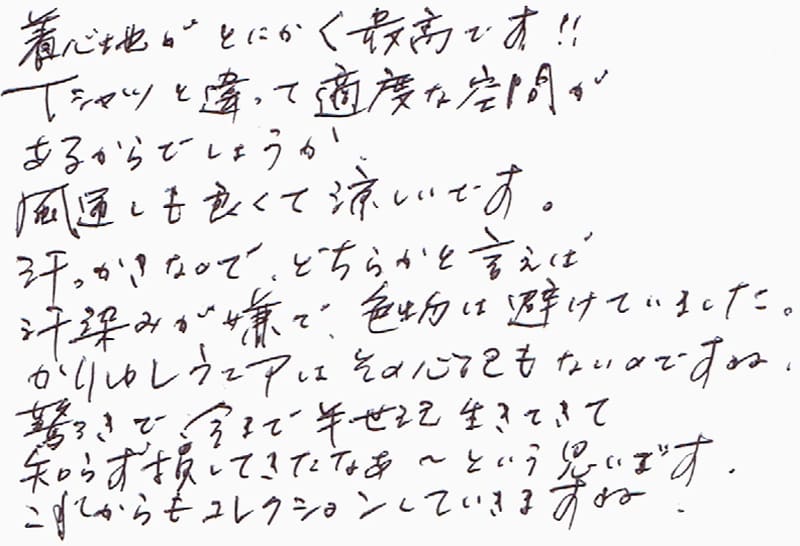 着心地がとにかく最高です!!
Tシャツと違って適度な空間が
あるからでしょうか、
風通しも良くて涼しいです。
汗っかきなので、どちらかと言えば
汗染みが嫌で、色物は避けていました。
かりゆしウェアはその心配もないのですね、
驚きで、今まで半世紀生きてきて
知らず損してきたなあ〜という思いです。
これからもコレクションしていきますね。